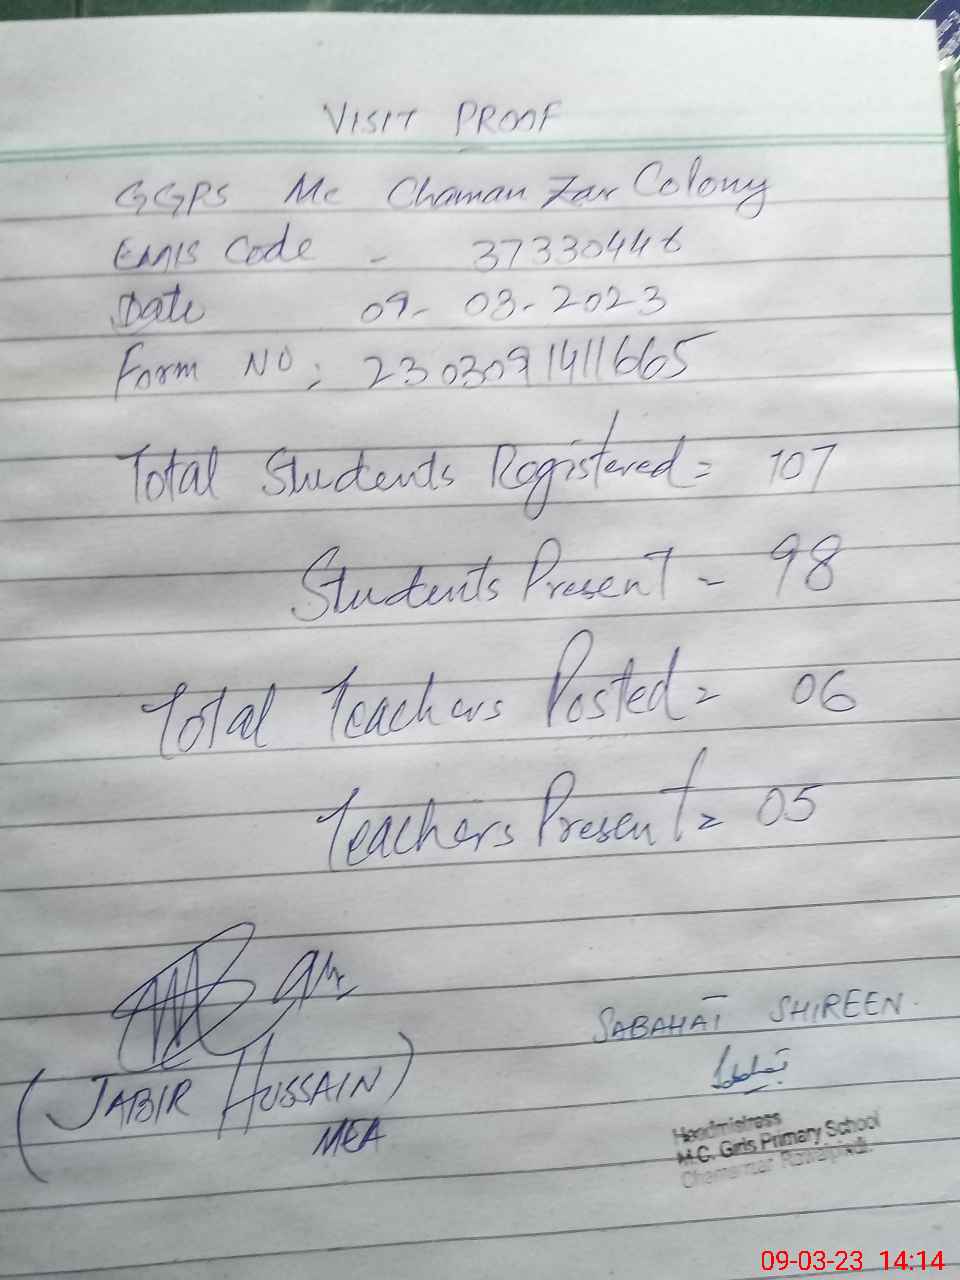 VISIT PROOF
GGPS Mc Chaman Zar Colony
EMIS Code - 37330446
Date 09-03-2023
Form NO: 2303091411665
Total Students Registered = 107
Students Present - 98
Total Teachers Posted = 06
Teachers Present = 05
SABAHAT SHIREEN.
(JABIR HUSSAIN)
MEA
Headmistress
M.C. Girls Primary School
Rawalpindi.
09-03-23 14:14